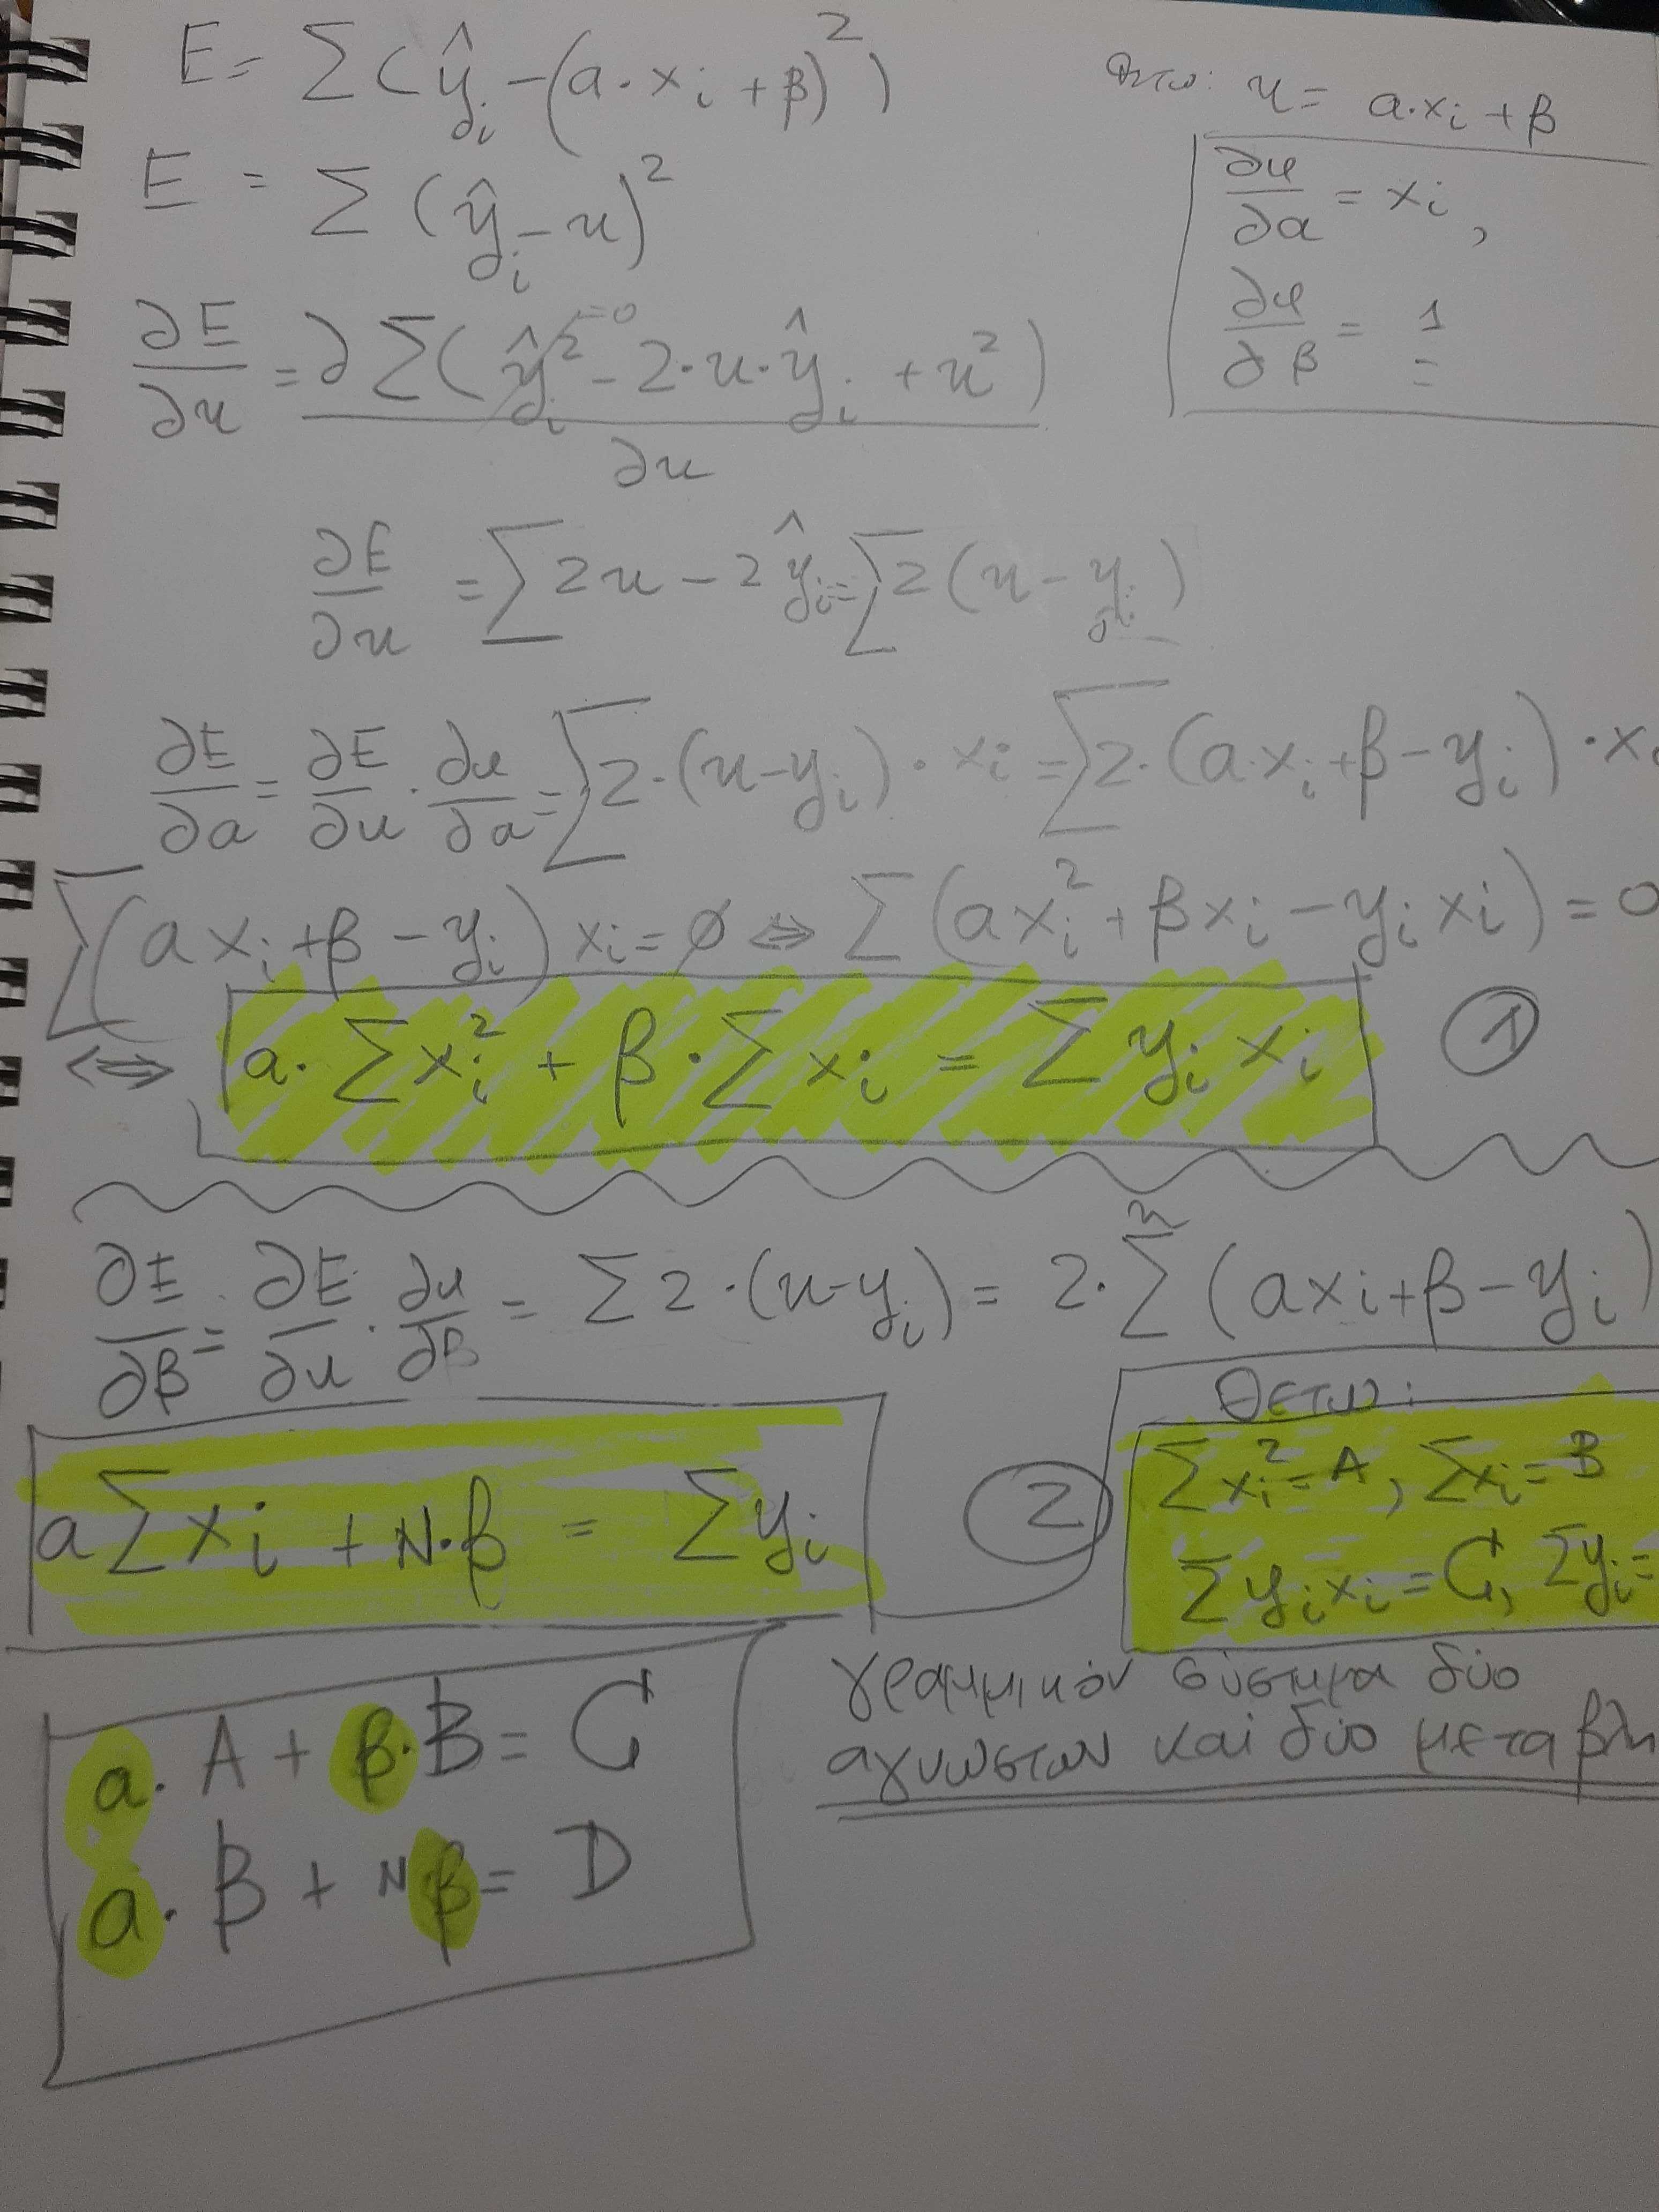 E = Σ(ŷi - (a·xi + β)²)
θετω: u = a·xi + β
E = Σ (ŷi - u)²
∂u/∂a = xi ,
∂u/∂β = 1
∂E/∂u = ∂Σ(ŷi² =0 - 2·u·ŷi + u²) / ∂u
∂E/∂u = Σ 2u - 2ŷi = Σ 2(u - yi)
∂E/∂a = ∂E/∂u · ∂u/∂a = Σ 2·(u - yi)·xi = Σ 2·(a·xi + β - yi)·xi
Σ(axi + β - yi) xi = 0 ⇔ Σ(axi² + βxi - yi xi) = 0
⇔ a·Σxi² + β·Σxi = Σ yi xi ①
∂E/∂β = ∂E/∂u · ∂u/∂β = Σ 2·(u - yi) = 2·Σ (axi + β - yi)
aΣxi + N·β = Σyi ②
Θετω:
Σxi² = A, Σxi = B
Σyi xi = C, Σyi =
a·A + β·B = C
a·B + N·β = D
γραμμικόν σύστημα δύο
αγνώστων και δύο μεταβλη